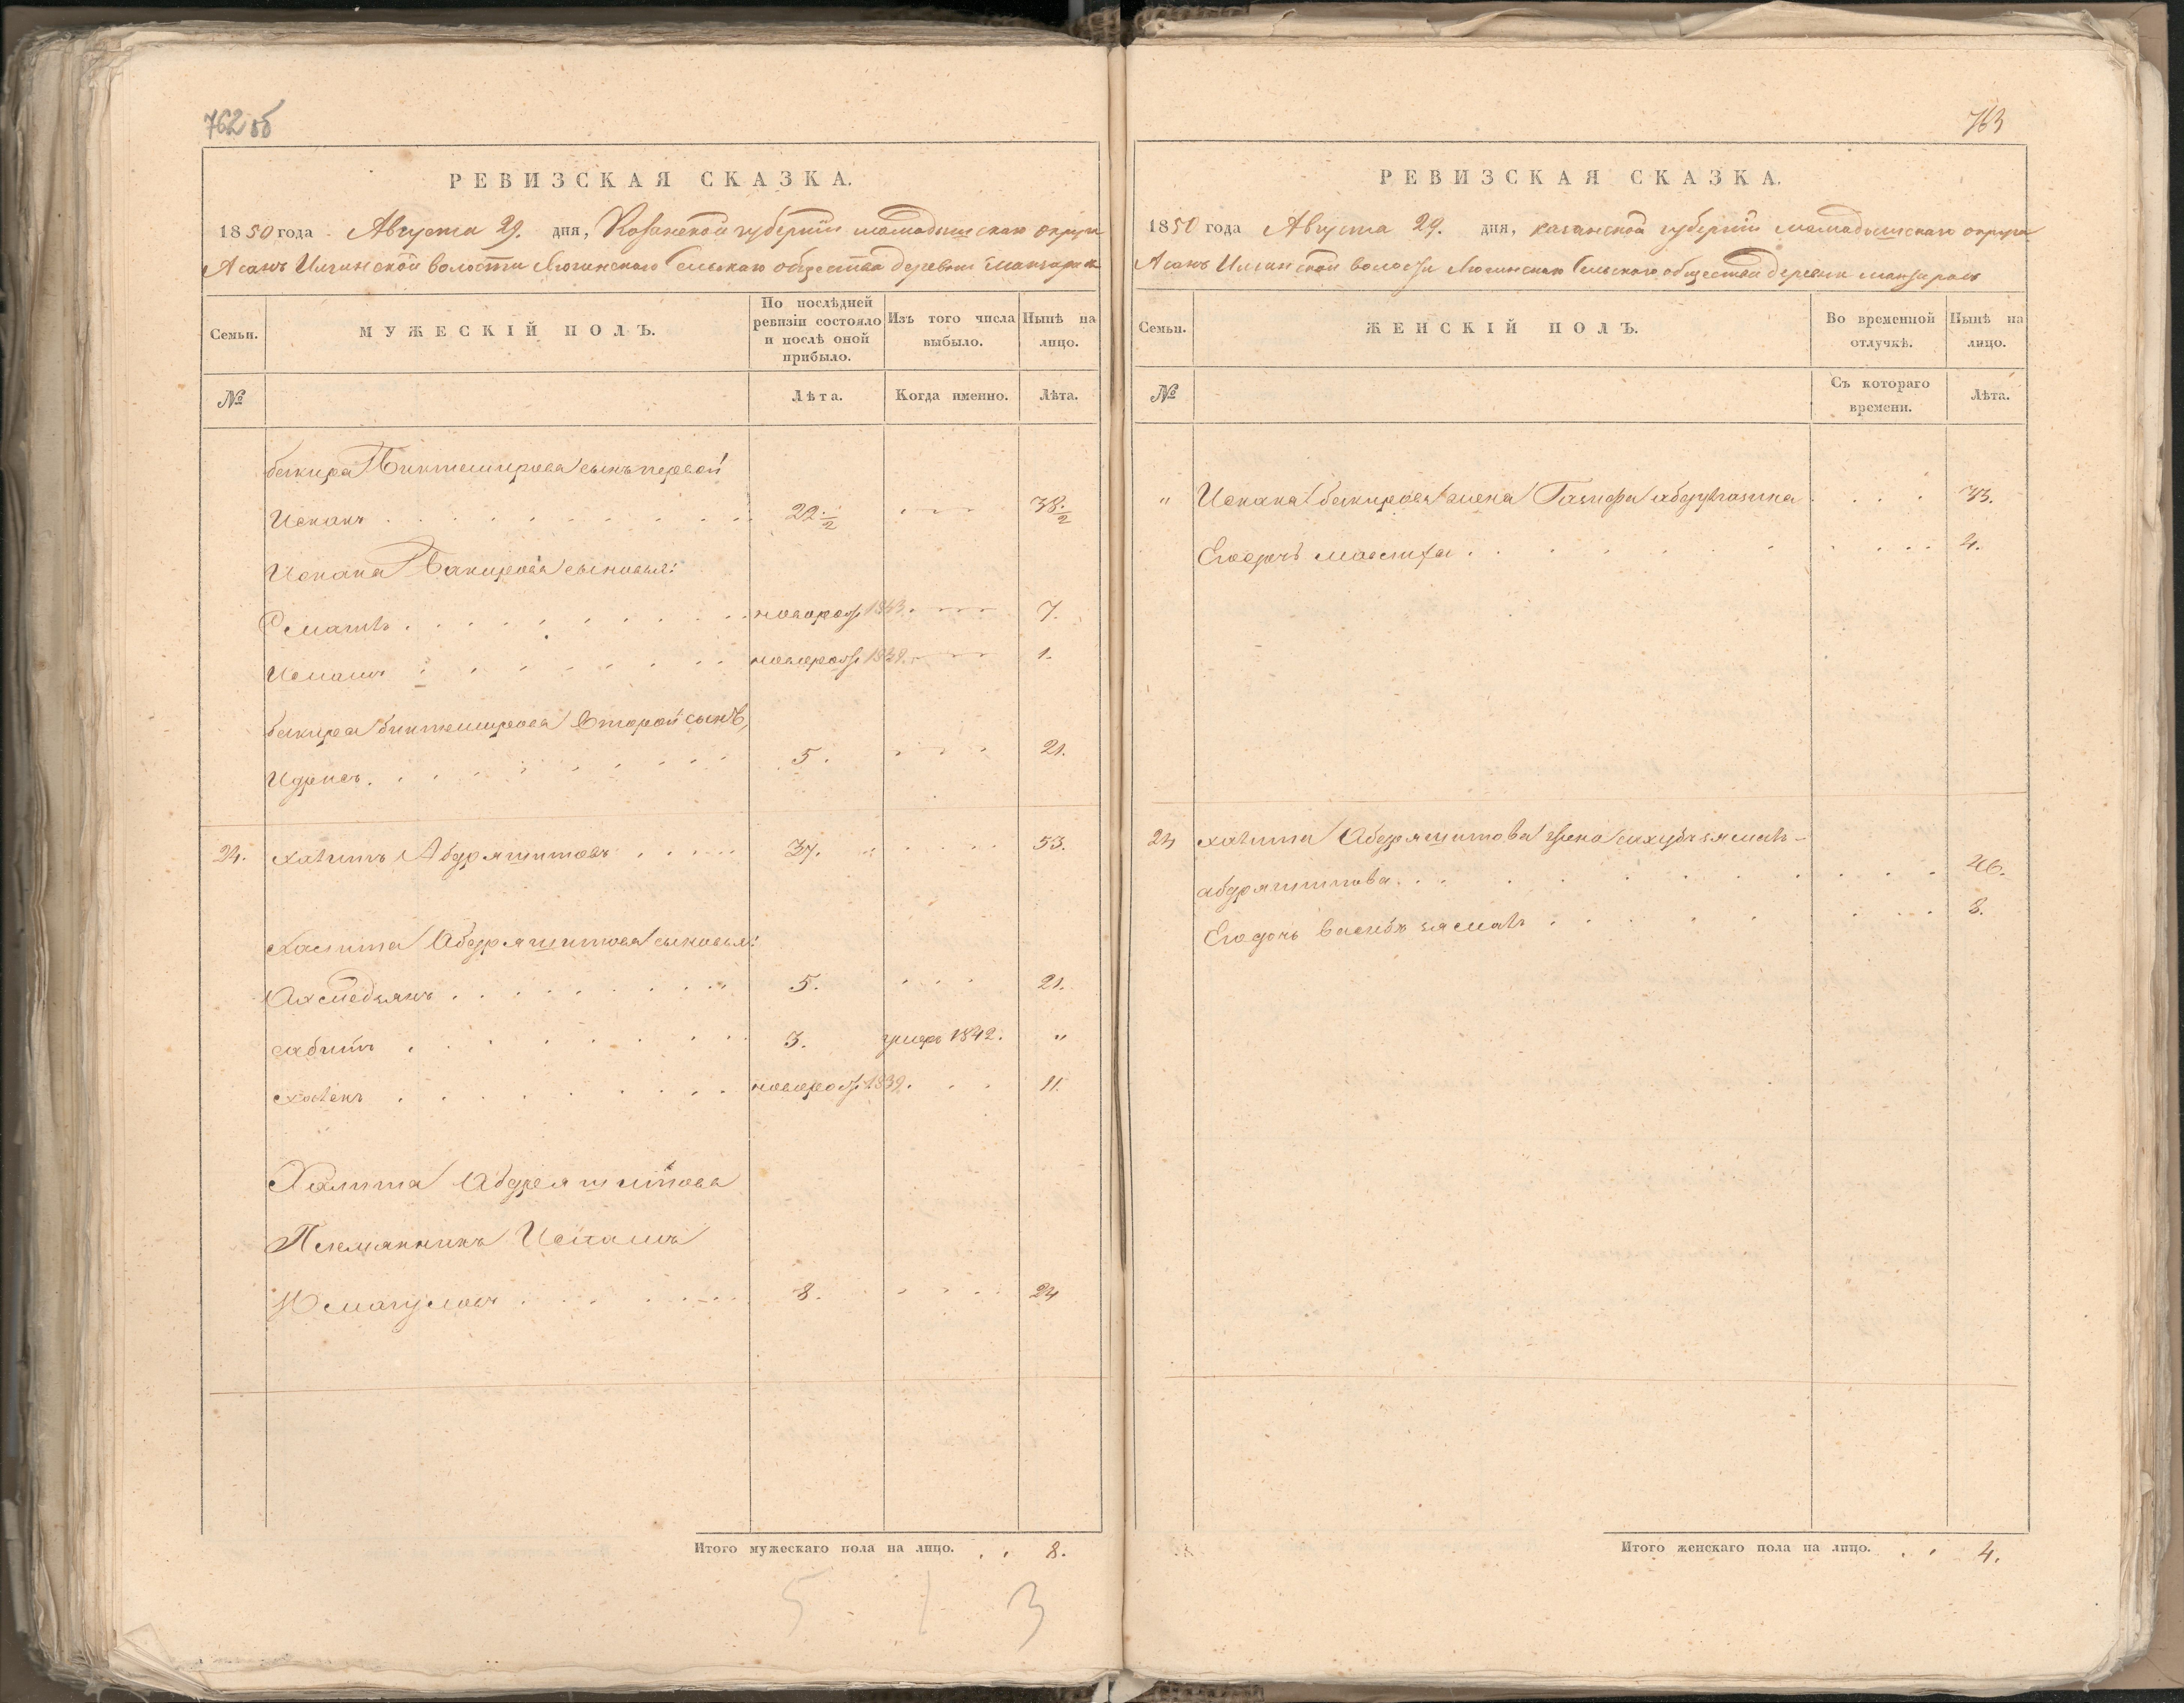 762 об
РЕВИЗСКАЯ СКАЗКА.
1850 года Августа 29. дня, Казанской губернiи мамадышскаго округа
Асанъ Илгинской волости Сельскаго общества деревни
Семьи.
МУЖЕСКІЙ ПОЛЪ.
По послѣдней ревизіи состояло и послѣ оной прибыло.
Изъ того числа выбыло.
Нынѣ на лицо.
№
Лѣта.
Когда именно.
Лѣта.
бакира Биктемирова сынъ первой
Исхакъ 22 1/2 38 1/2
Исхака Бакирова сыновья:
новорож 1843. 7.
новорож 1849. 1.
бакира биктемирова Второй сынъ,
Идрисъ. 5. 21.
24. Халитъ Абдряшитовъ 37. 53.
Халита Абдряшитова сыновья:
Ахмедзянъ 5. 21.
сабитъ 3. умеръ 1842. "
новорож 1839. 11.
Халита Абдряшитова
Племянникъ
8. 24
Итого мужескаго пола на лицо. 8.
5 1 3
763
РЕВИЗСКАЯ СКАЗКА.
1850 года Августа 29. дня, казанской губернiи мамадышскаго округа
Асанъ Илгинской волости Сельскаго общества деревни
Семьи.
ЖЕНСКІЙ ПОЛЪ.
Во временной отлучкѣ.
Нынѣ на лицо.
№
Съ котораго времени.
Лѣта.
" Исхака бакирова жена 33.
Его дочь 4.
24 халита Абдряшитова жена
абдряшитова. 46.
Его дочь 8.
Итого женскаго пола на лицо. 4.